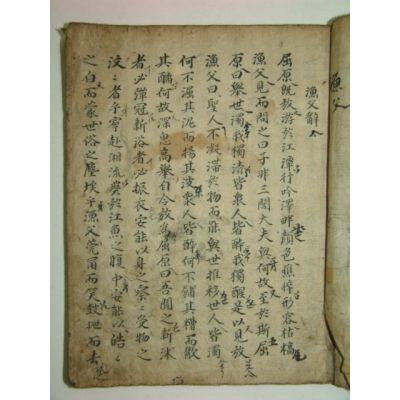 漁父
漁父辭
屈原既放游於江潭行吟澤畔顔色憔悴形容枯槁
漁父見而問之曰子非三閭大夫與何故至於斯屈
原曰舉世濁我獨清皆衆人皆醉我獨醒是以見放
漁父曰聖人不凝滯於物而能與世推移世人皆濁
何不淈其泥而揚其波衆人皆醉何不餔其糟而歠
其醨何故深思高舉自令放爲屈原曰吾聞之新沐
者必彈冠新浴者必振衣安能以身之察〻受物之
汶〻者乎寧赴湘流葬於江魚之腹中安能以皓〻
之白而蒙世俗之塵埃乎漁父莞爾而笑鼓枻而去